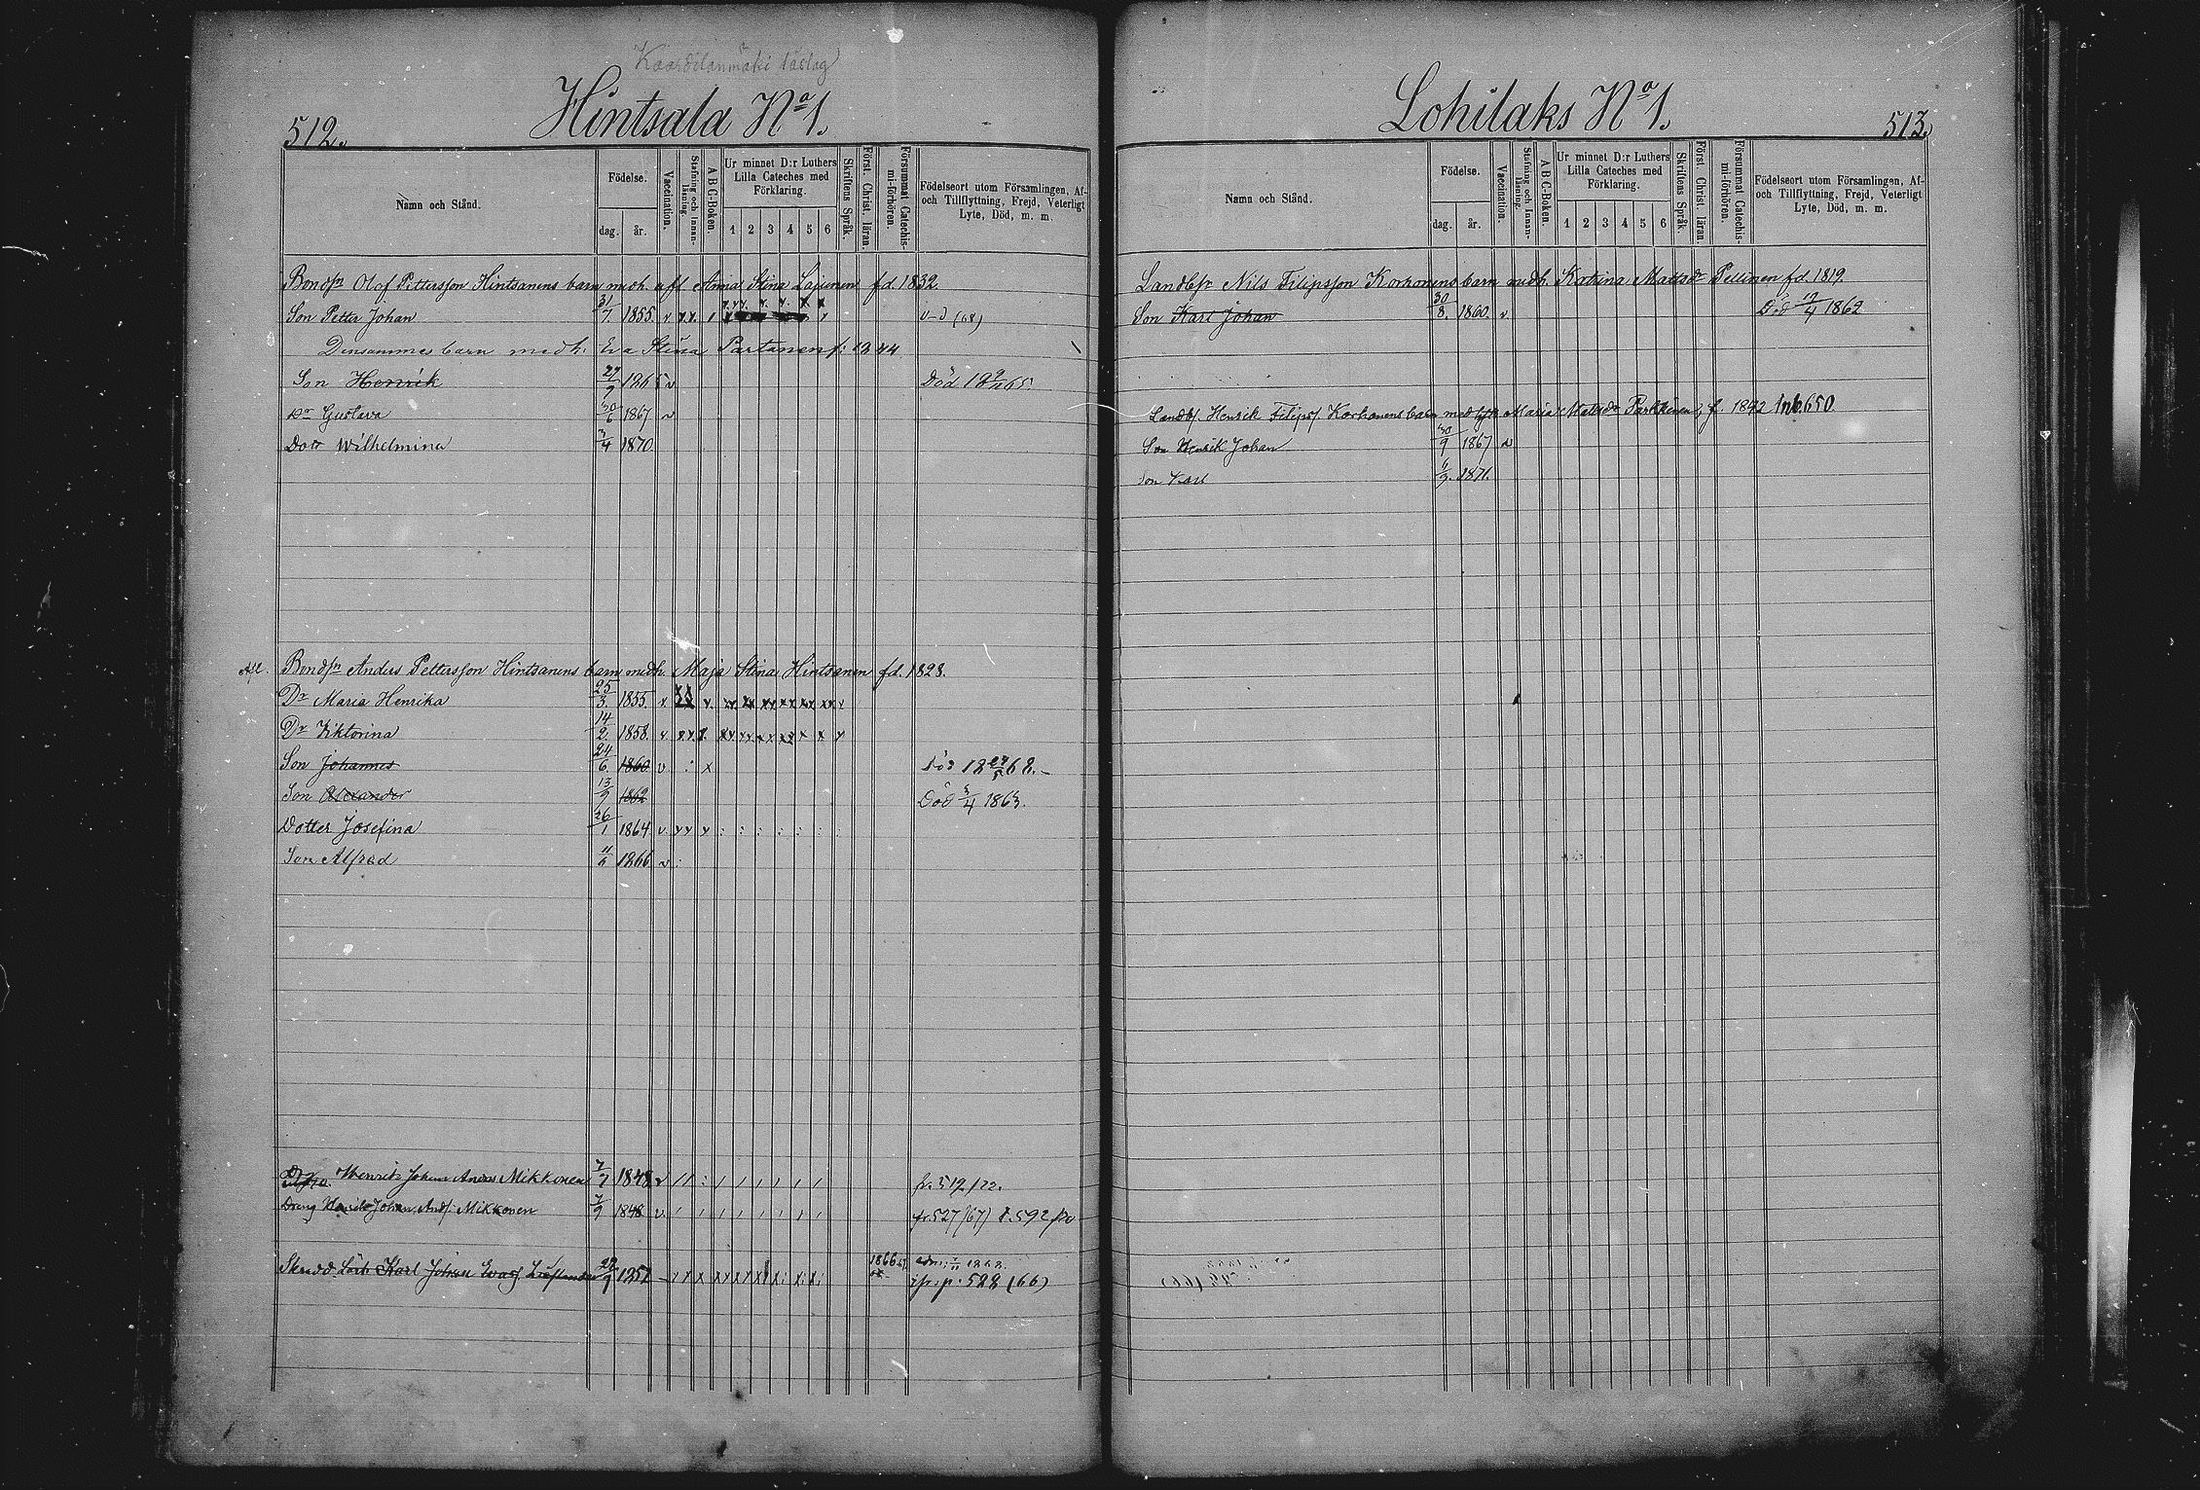 512.
Hintsala No 1.
Namn och Stånd.
Födelse.
dag.
år.
Vaccination.
Stafning och Innanläsning.
A B C-Boken.
Ur minnet D:r Luthers Lilla Cateches med Förklaring.
1 2 3 4 5 6
Skriftens Språk.
Först. Christ. läran.
Försummat Catechismi-förhören.
Födelseort utom Församlingen, Af- och Tillflyttning, Frejd, Veterligt Lyte, Död, m. m.
Bondsn Olof Pettersson Hintsanens barn medh. afl Anna Stina Lajunen f.d. 1832
Son Petter Johan 31/7 1855 v
Densammes barn medh. Eva Stina Partanen f. 1844
Son Henrik 1865 v Död
Gustava 1867 v
Dotr Wilhelmina 3/4 1870
Afl. Bondsn Anders Pettersson Hintsanens barn medh. Maja Stina Hintsanen f.d. 1828.
Dr Maria Henrika 25/3 1855 v
Dr Viktorina 14/2 1858. v
Son Johannes 24/6 1860 v Död
Son Alexander 13/9 1862 Död 3/4 1863.
Dotter Josefina 26/1 1864 v
Son Alfred 11/6 1866 v
Henrik Johan Anders Mikkonen 7/9 1848 v fr. 519/72.
Dreng Henrik Johan And. Mikkonen 7/9 1848 v fr. 527 (67) 592/70
Skrädd. Karl Johan 1852 1866 p. 528 (66)
Lohilaks No 1.
513.
Namn och Stånd.
Födelse.
dag.
år.
Vaccination.
Stafning och Innanläsning.
A B C-Boken.
Ur minnet D:r Luthers Lilla Cateches med Förklaring.
1 2 3 4 5 6
Skriftens Språk.
Först. Christ. läran.
Försummat Catechismi-förhören.
Födelseort utom Församlingen, Af- och Tillflyttning, Frejd, Veterligt Lyte, Död, m. m.
Landbsn Nils Filipsson Korhonens barn medh. Katrina Mattsdr Pellinen f.d. 1819.
Son Karl Johan 30/8 1860. v. Död 12/4 1862
Landb. Henrik Filips. Korhonens barn med Maria Matsdr Parkkinen, f. 1842 Inh. 650.
Son Henrik Johan 30/9 1867 v
Son Karl 1871.